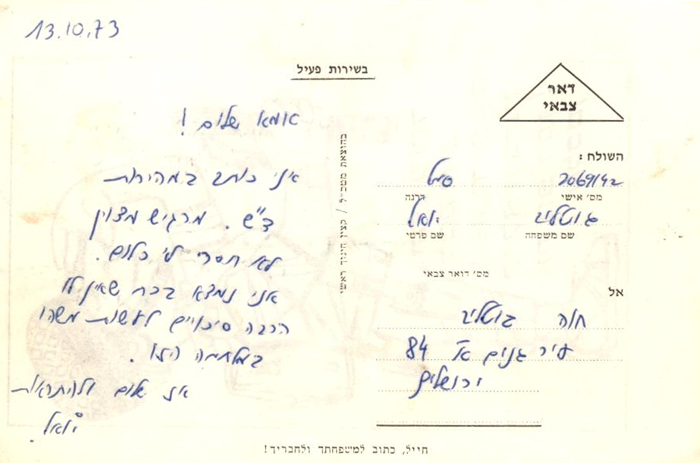 13.10.73
בשירות פעיל
דאר
צבאי
אמא שלום !
אני כותב במהירות
ד"ש. מרגיש מצוין
לא חסר לי כלום.
אני נמצא בכח שאין לו
הרבה סיכויים לעשות משהו
במלחמה הזו.
אז שלום ולהתראות
יואל.
בהוצאת מטכ"ל / קצין חינוך ראשי
השולח:
2069142 סמל
מס' אישי דרגה
גוטליב יואל
שם משפחה שם פרטי
מס' דואר צבאי
אל
חוה גוטליב
עיר גנים א' 84
ירושלים
חייל, כתוב למשפחתך ולחבריך!